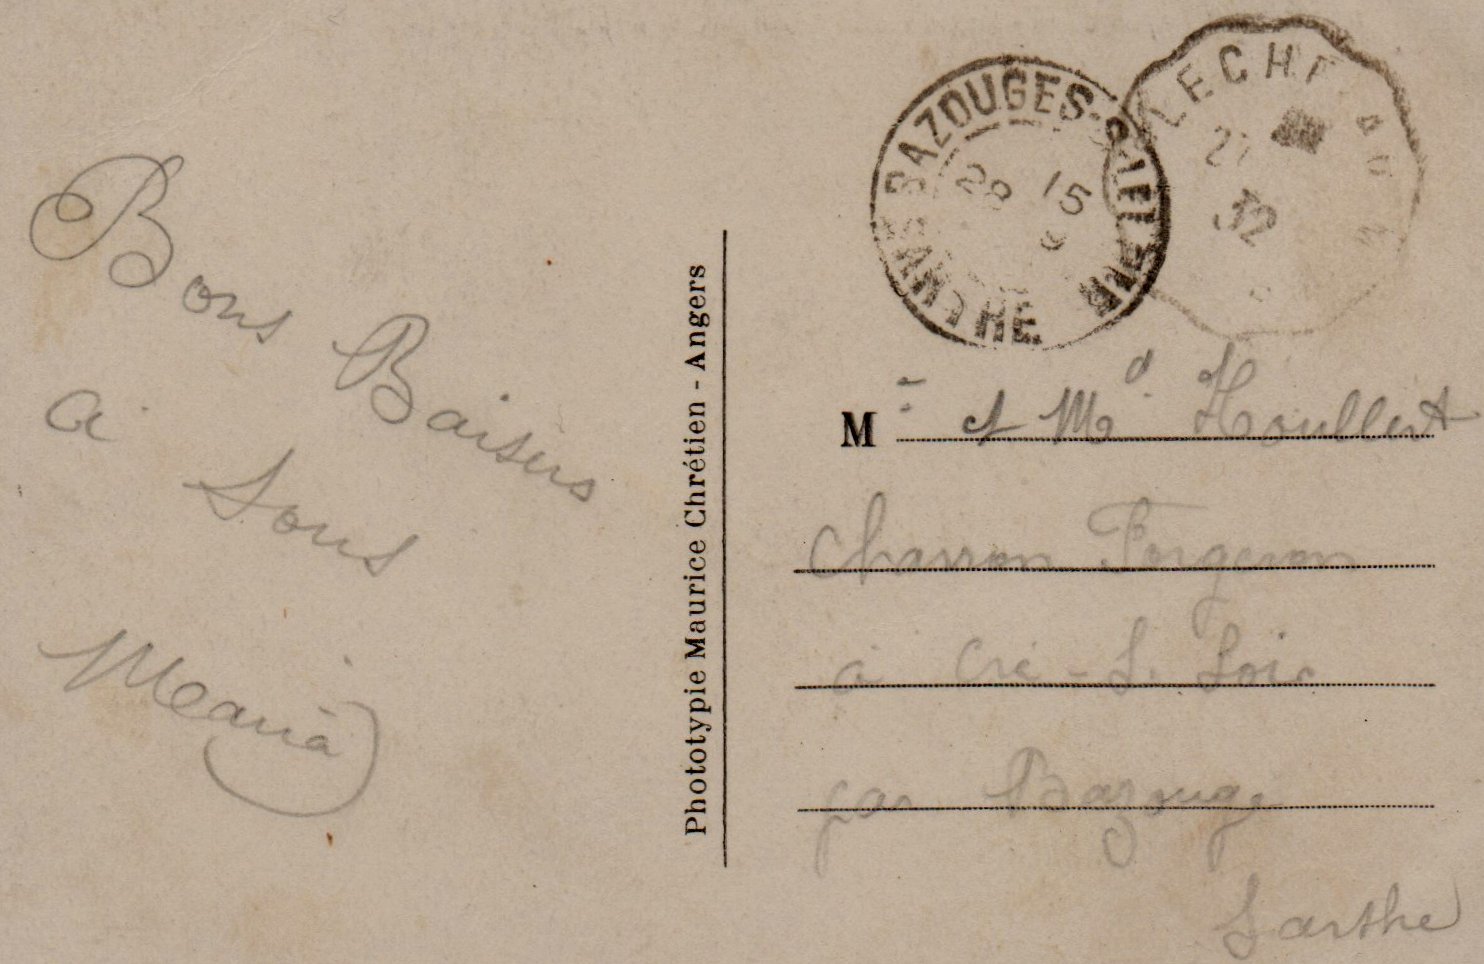 Bons Baisers
à Tous
Maria
Phototypie Maurice Chrétien - Angers
BAZOUGES-S-LE-LOIR
SARTHE
28 15
9
32
Mr et Md Houllert
charron Forgeron
à Cré-S. Loir
par Bazouge
Sarthe